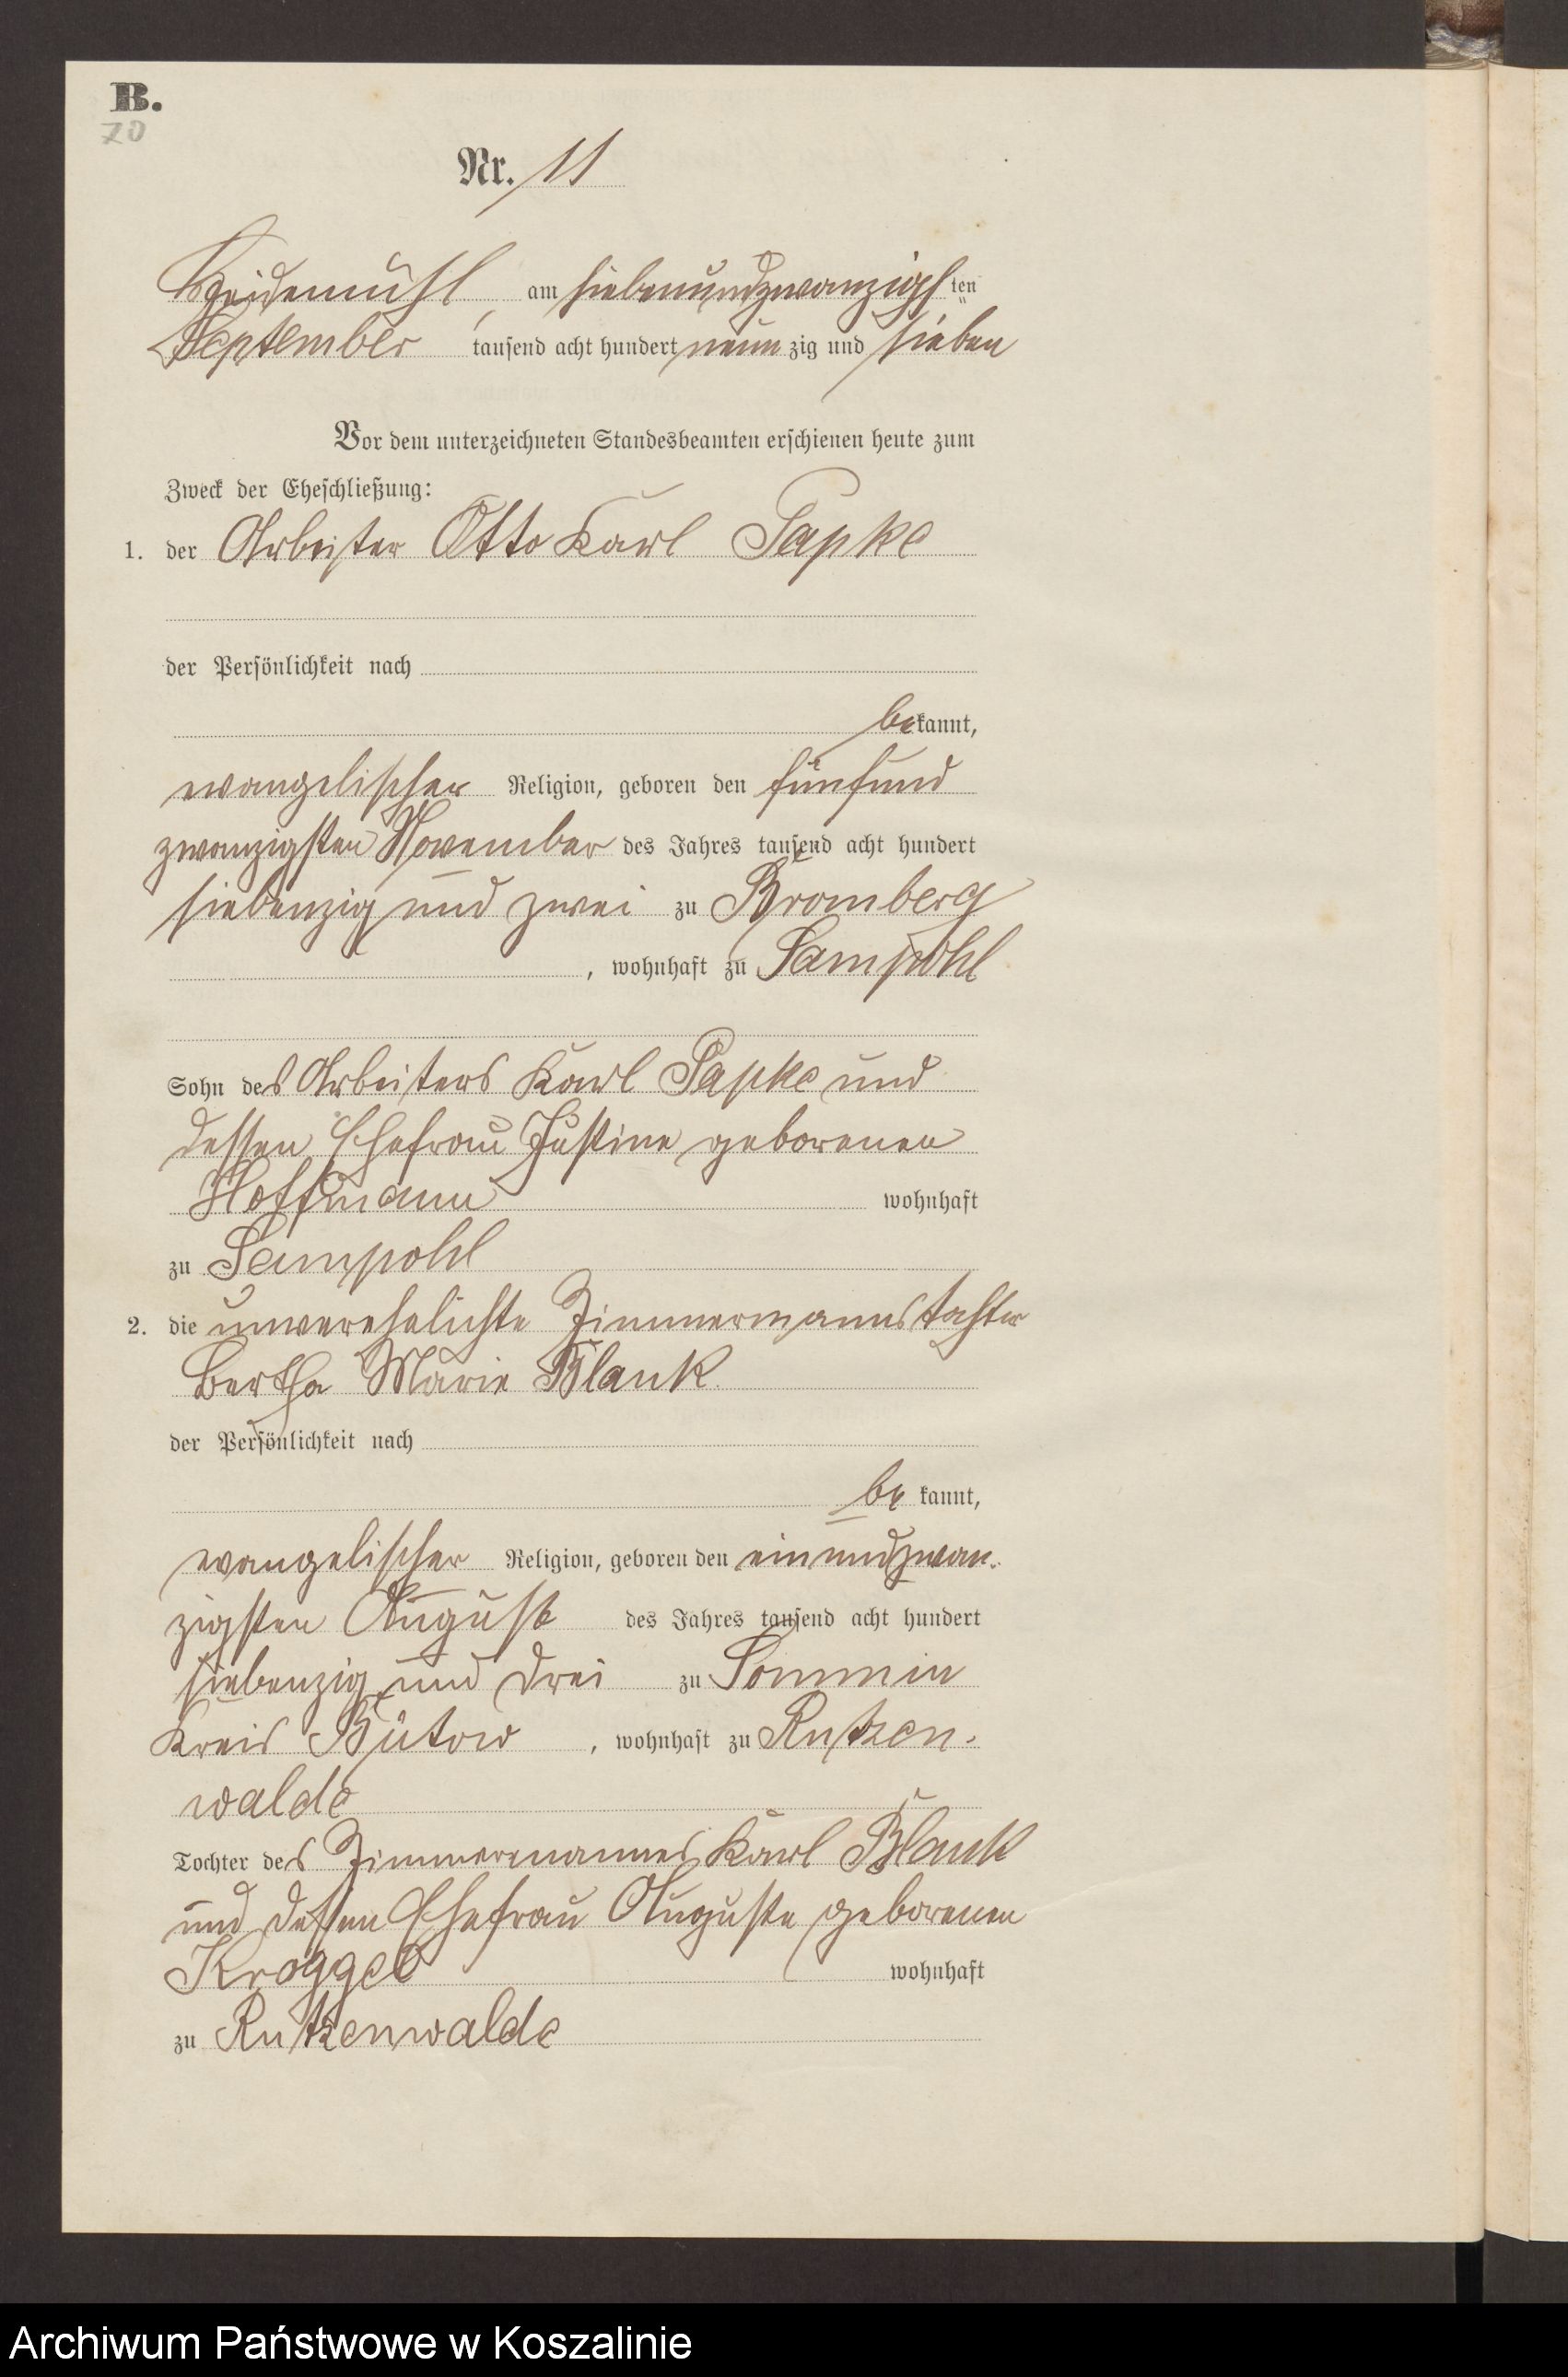 B.
70
Nr. 11
am siebenundzwanzigsten
September tausend acht hundert neunzig und sieben
Vor dem unterzeichneten Standesbeamten erschienen heute zum
Zweck der Eheschließung:
1. der Arbeiter Otto Karl Papke
der Persönlichkeit nach
bekannt,
evangelischer Religion, geboren den fünfund
zwanzigsten November des Jahres tausend acht hundert
siebenzig und zwei zu Bromberg
, wohnhaft zu Sampohl
Sohn des Arbeiters Karl Papke und
dessen Ehefrau Justine geborenen
Hoffmann wohnhaft
zu Sampohl
2. die unverehelichte Zimmermannstochter
Bertha Marie Blank
der Persönlichkeit nach
bekannt,
evangelischer Religion, geboren den einundzwan-
zigsten August des Jahres tausend acht hundert
siebenzig und drei zu Sommin
Kreis Bütow, wohnhaft zu Rutzen-
walde
Tochter des Zimmermannes Karl Blank
und dessen Ehefrau Auguste geborenen
Kroggel wohnhaft
zu Rutzenwalde
Archiwum Państwowe w Koszalinie